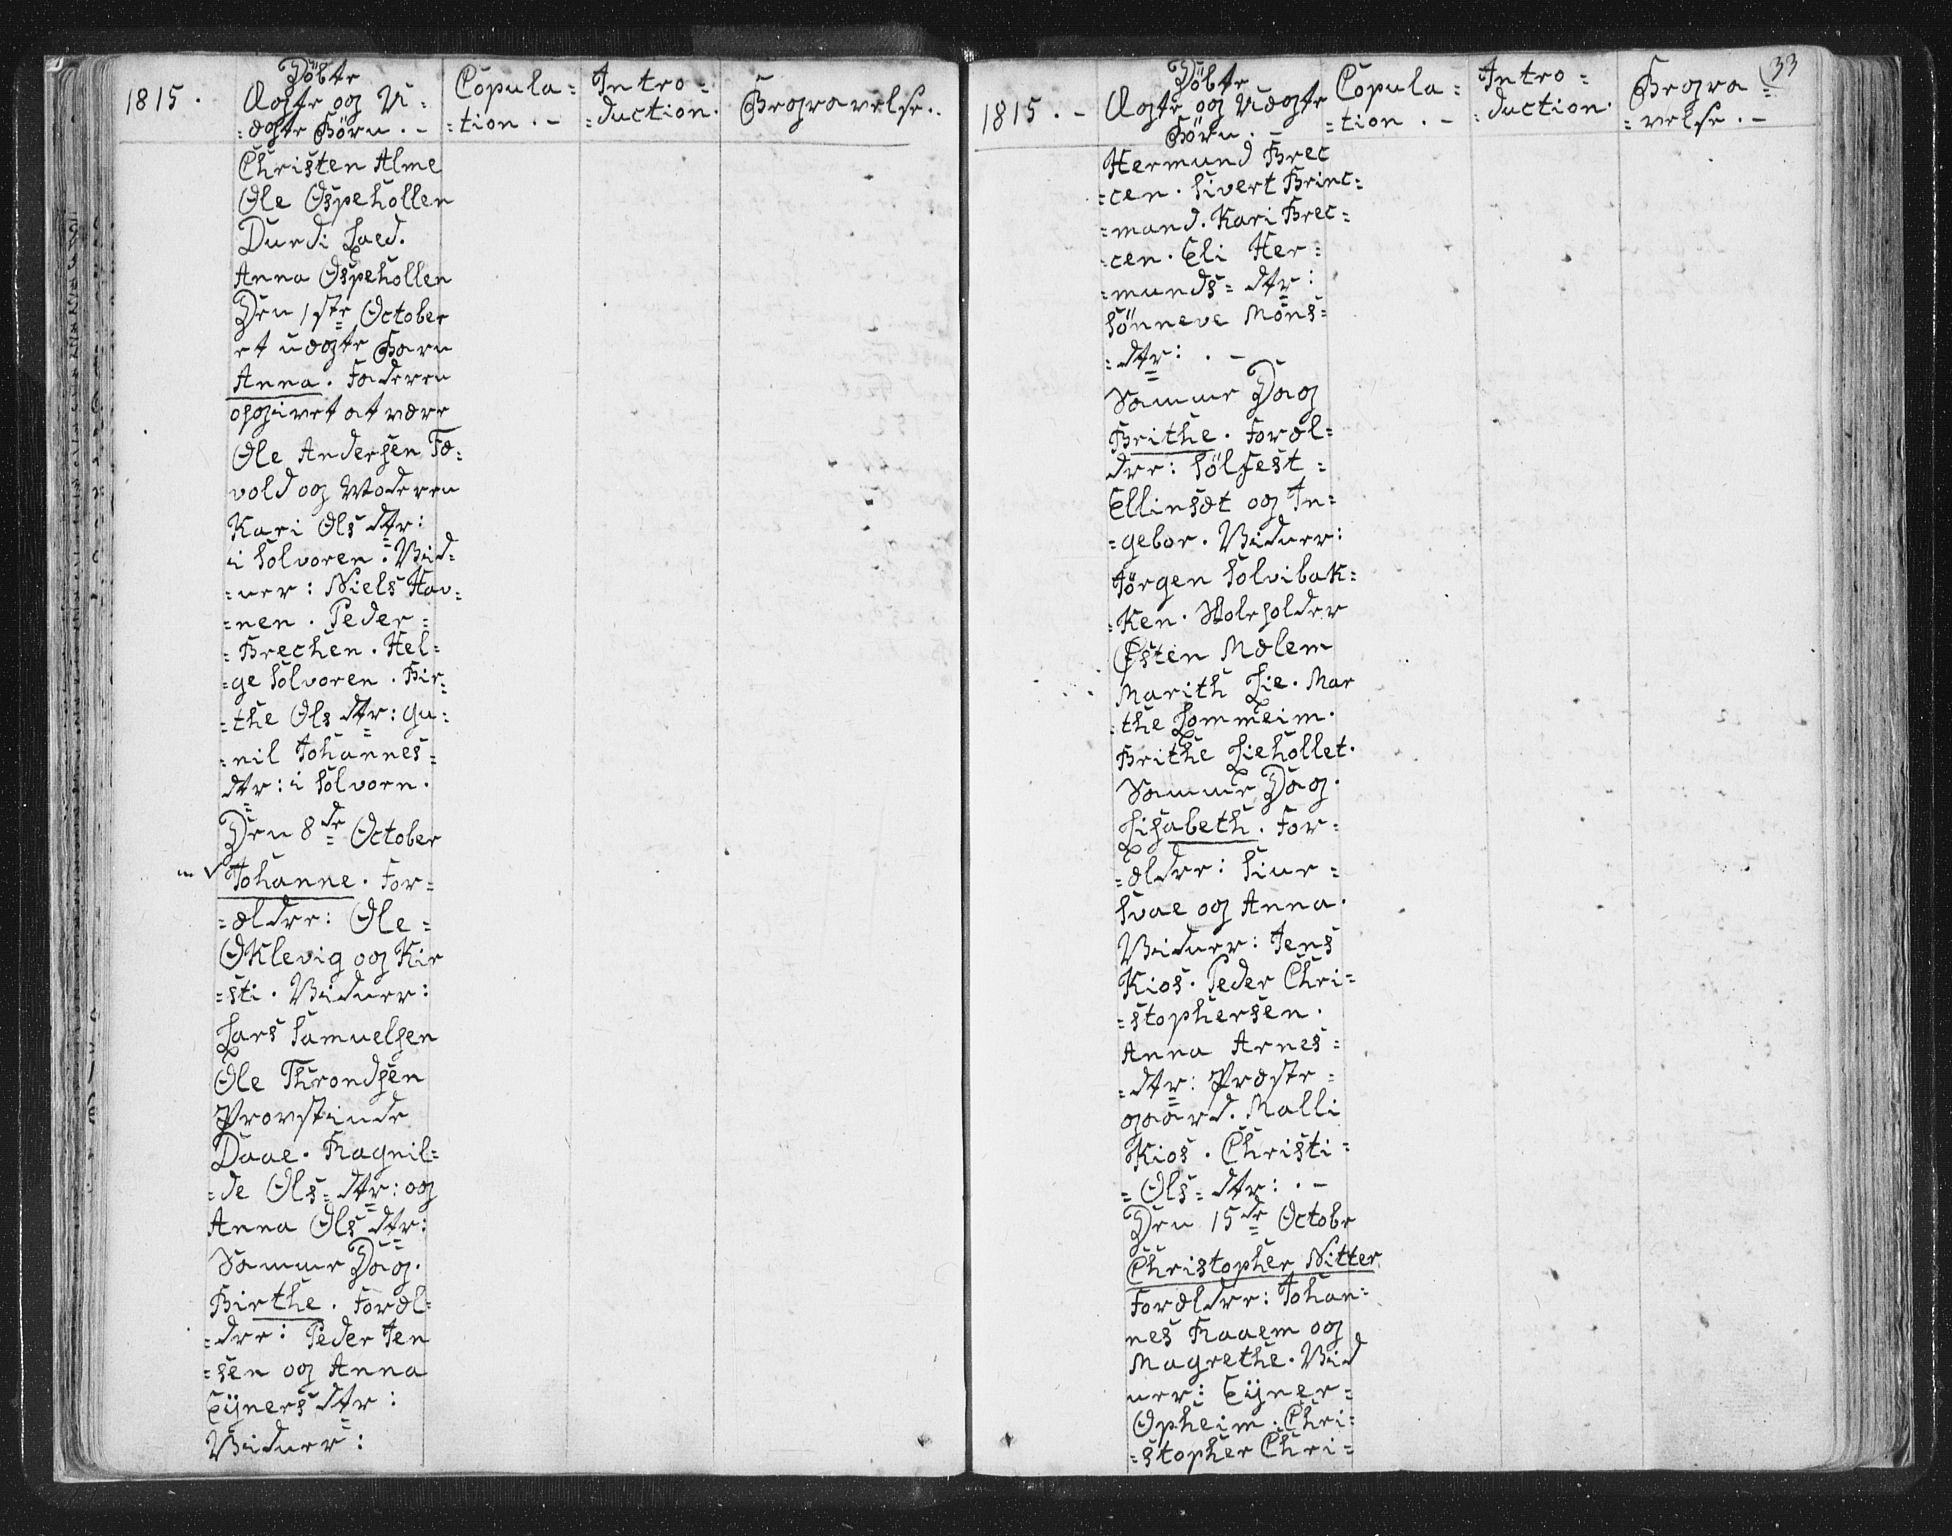 1815.
Döbte
Ægte og U=
=ægte Börn. -
Copula=
=tion. -
Intro=
=duction.
Begravelse.
Christen Alme
Ole Ospehollen
Durdi Laed.
Anna Ospehollen
Den 1ste October
et uægte Barn
Anna. Faderen
opgivet at være
Ole Andersen Fæ=
vold og Moderen
Kari Ols dtr:
i Solvoren. Vid=
=ner: Niels Hav=
=nen. Peder=
=Brechen. Hel=
=ge Solvoren. Bir=
=the Ols dtr: Gu=
=nil Johannes=
dtr: i Solvorn.
Den 8de October
Johanne. For=
=ældre: Ole=
Oklevig og Kir
=sti. Vidner:
Lars Samuelsen
Ole Throndsen
Provstinde
Daae. Ragnil=
=de Ols= dtr: og
Anna Ols dtr:
Samme Dag.
Birthe. Foræl=
=dre: Peder Jen
=sen og Anna
Eÿners dtr:
Vidner:
33
1815. -
Döbte
Ægte og Uægte
Börn. -
Copula=
=tion. -
Intro=
=duction.
Begra=
=velse. -
Hermund Brec
=cen. Sivert Brinc=
=mand. Kari Brec=
=cen. Eli Her=
=munds= dtr:
Sönneve Möns=
=dtr: . -
Samme Dag
Brithe. Foræl=
dre: Sölfest=
Ellinsæt og In=
=gebor. Vidner:
Jörgen Solvibak=
=ken. Skoleholder
Østen Mælem
Marith Lie. Mar
=the Lommeim.
Brithe Liehollet.
Samme Dag.
Lisabeth. For=
=ældre: Siur=
Svae og Anna.
Vidner: Jens
Kios. Peder Chri=
=stophersen.
Anna Arnes=
=dtr: Præste=
gaard. Malli
Kios. Christi=
=Ols= dtr: . -
Den 15de Octobr
Christopher Nitter
Forældre: Johan=
nes Raaem og
Magrethe. Vid
ner: Eÿner=
Opheim. Chri=
=stopher Chri=